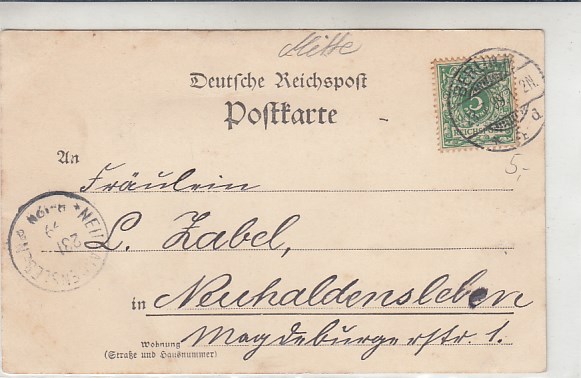 Mitte
Deutsche Reichspost
Postkarte
BERLIN
5
REICHSPOST
5,-
An
Fräulein
L. Zabel,
in Neuhaldensleben
Magdeburgerstr. 1.
Wohnung
(Straße und Hausnummer)
NEUHALDENSLEBEN